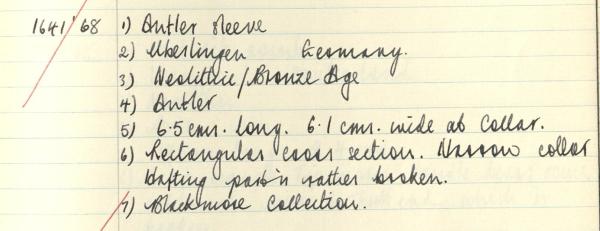 1641/'68 1) Antler sleeve
2) Uberlingen Germany.
3) Neolithic/Bronze Age
4) Antler
5) 6.5 cms. long. 6.1 cms. wide at Collar.
6) Rectangular cross section. Narrow collar
Hafting part'n rather broken.
7) Blackmore Collection.